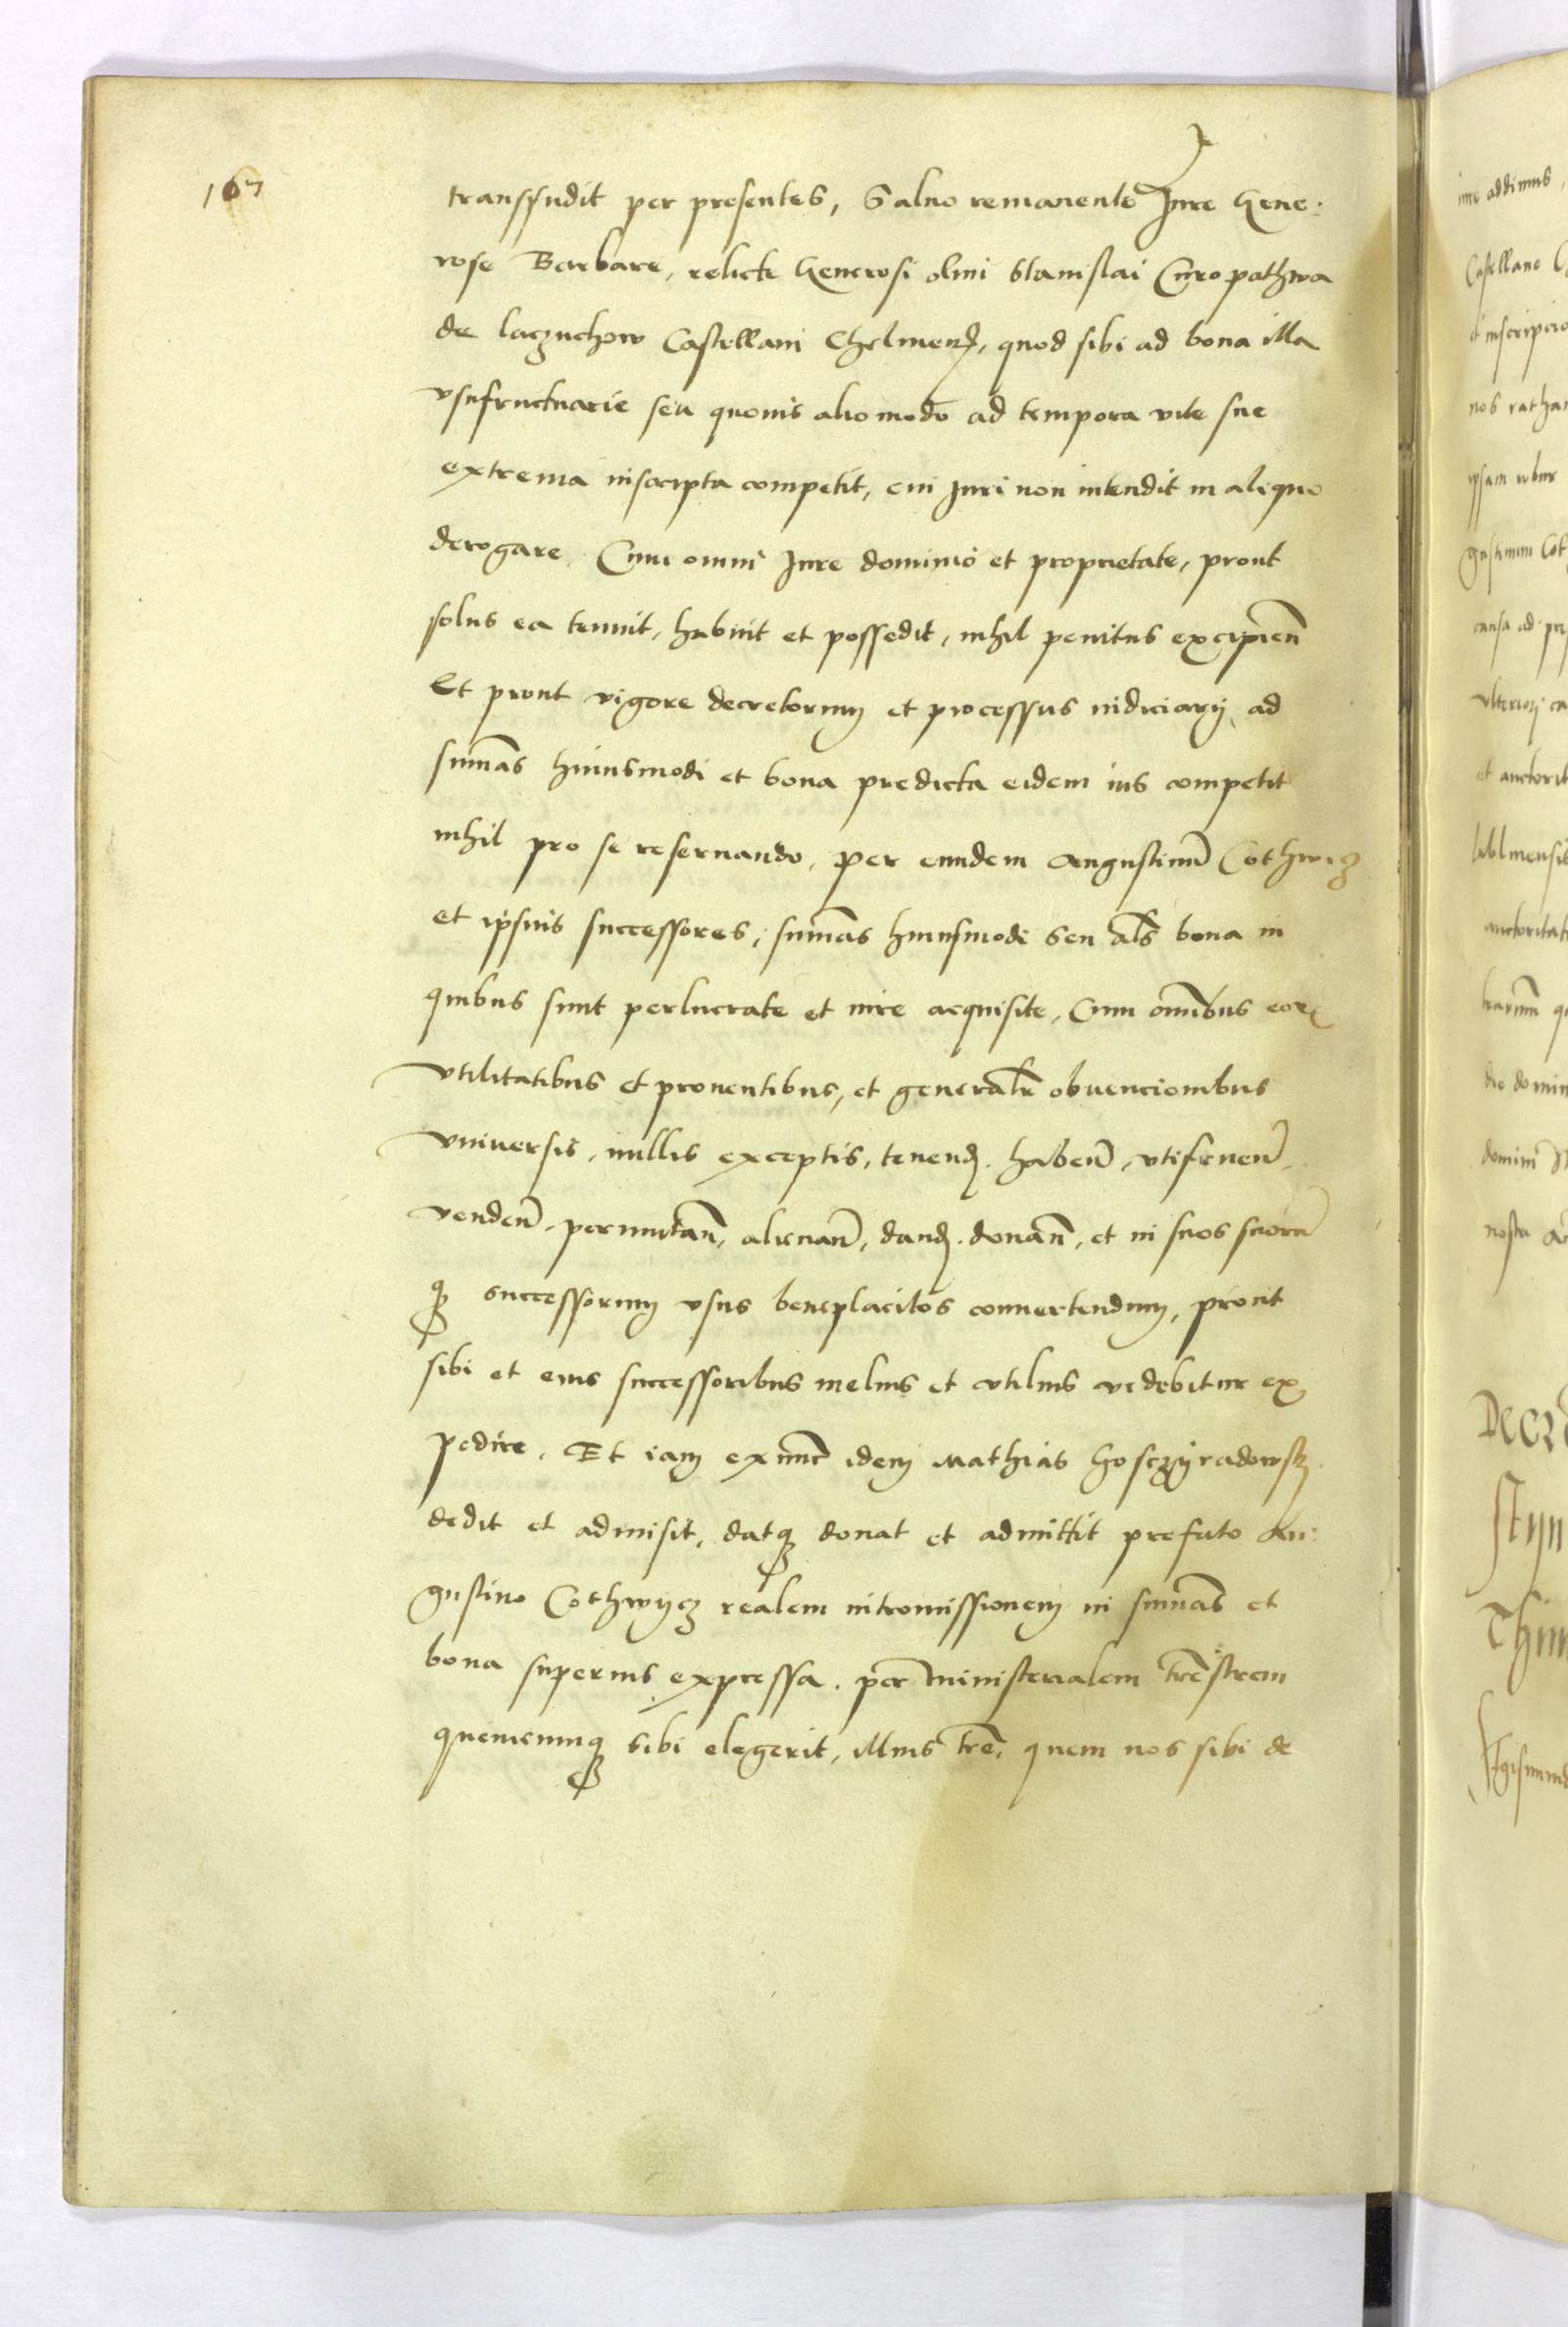 167
transfudit per presentes, Saluo remanente Jure Gene:
rose Barbare, relicte Generosi olim Stanislai Curopathwa
de laczuchow Castellani Chelmen̄, quod sibi ad bona illa
vsufructuarie seu quouis alio modo ad tempora vite sue
extrema inscripta competit, cui Juri non intendit in aliquo
derogare. Cum omni Jure dominio et proprietate, prout
solus ea tenuit, habuit et possedit, nihil penitus excipien̄
Et prout vigore decretorum et processus iudiciarij, ad
sum̄as huiusmodi et bona predicta eidem ius competit
nihil pro se reseruando, per eundem Augustinū Cothwicz
et ipsius successores, sum̄as huiusmodi seu al̄s bona in
quibus sunt perlucrate et iure acquisite, Cum om̄ibus eoꝝ
vtilitatibus et prouentibus, et generalr̄ obuencionibus
vniuersis, nullis exceptis, tenend̄. haben̄, vtifruen̄,
venden̄, permutan̄, alienan̄, dand̄. donan̄, et in suos suorū
qꝫ successorum vsus beneplacitos conuertendum, prout
sibi et eius successoribus melius et vtilius videbitur ex
pedire. Et iam ex nūc idem Mathias Gosczyradowsk̄
dedit et admisit, datqꝫ donat et admittit prefato Au:
gustino Cothwycz realem intromissionem in sum̄as et
bona superius expressa. per ministerialem trē̄strem
quemcumqꝫ sibi elegerit, illius trē, quem nos sibi de
ime addimus,
Castellano
et inscripcio
nos ratha
ipsam
gustinum Cot
causa ad
vlteriori ca
et auctorit
lublinensis
auctoritat
trarum qu
dio domin
domini
nostra
DECRE
Thim
Sigismund